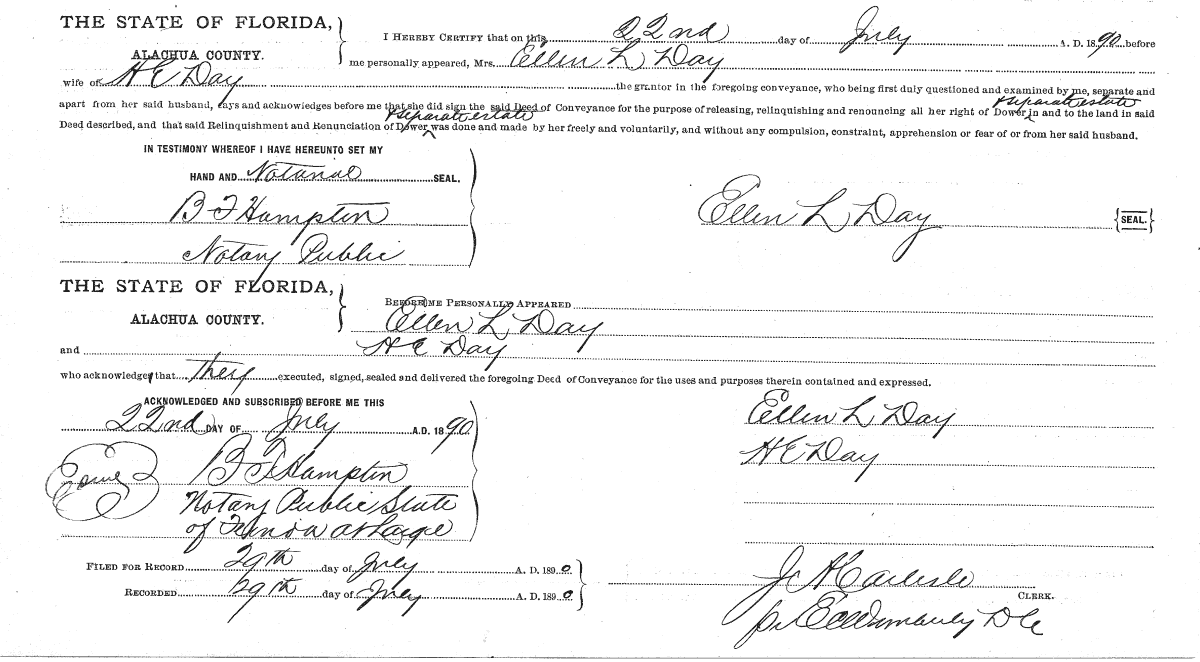 THE STATE OF FLORIDA,
ALACHUA COUNTY.
I HEREBY CERTIFY that on this 22nd day of July A. D. 1890 before
me personally appeared, Mrs. Ellen L Day
wife of H E Day the grantor in the foregoing conveyance, who being first duly questioned and examined by me, separate and
apart from her said husband, says and acknowledges before me that she did sign the said Deed of Conveyance for the purpose of releasing, relinquishing and renouncing all her right of Dower & separate estate in and to the land in said
Deed described, and that said Relinquishment and Renunciation of Dower & separate estate was done and made by her freely and voluntarily, and without any compulsion, constraint, apprehension or fear of or from her said husband.
IN TESTIMONY WHEREOF I HAVE HEREUNTO SET MY
HAND AND Notarial SEAL.
B F Hampton
Notary Public
Ellen L Day {SEAL.}
THE STATE OF FLORIDA,
ALACHUA COUNTY.
BEFORE ME PERSONALLY APPEARED
Ellen L Day
and H E Day
who acknowledge that they executed, signed, sealed and delivered the foregoing Deed of Conveyance for the uses and purposes therein contained and expressed.
ACKNOWLEDGED AND SUBSCRIBED BEFORE ME THIS
22nd DAY OF July A.D. 1890
B F Hampton
Notary Public State
of at Large
Ellen L Day
H E Day
FILED FOR RECORD 29th day of July A. D. 1890
RECORDED 29th day of July A. D. 1890
J A Carlisle
CLERK.
pr E C Wimberly D C